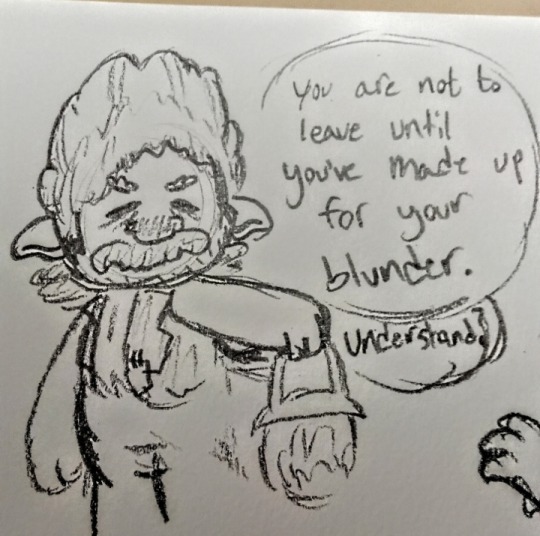 you are not to
leave until
you've made up
for your
blunder.
Understand?